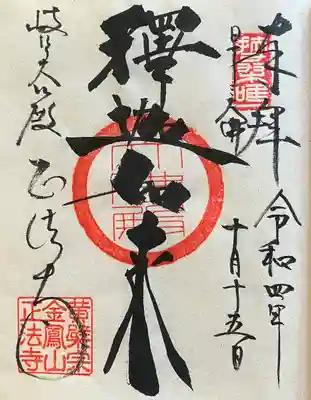 奉拝
令和四年
十月十五日
釋迦如来
岐阜大仏殿
正法寺
黄檗宗
金鳳山
正法寺